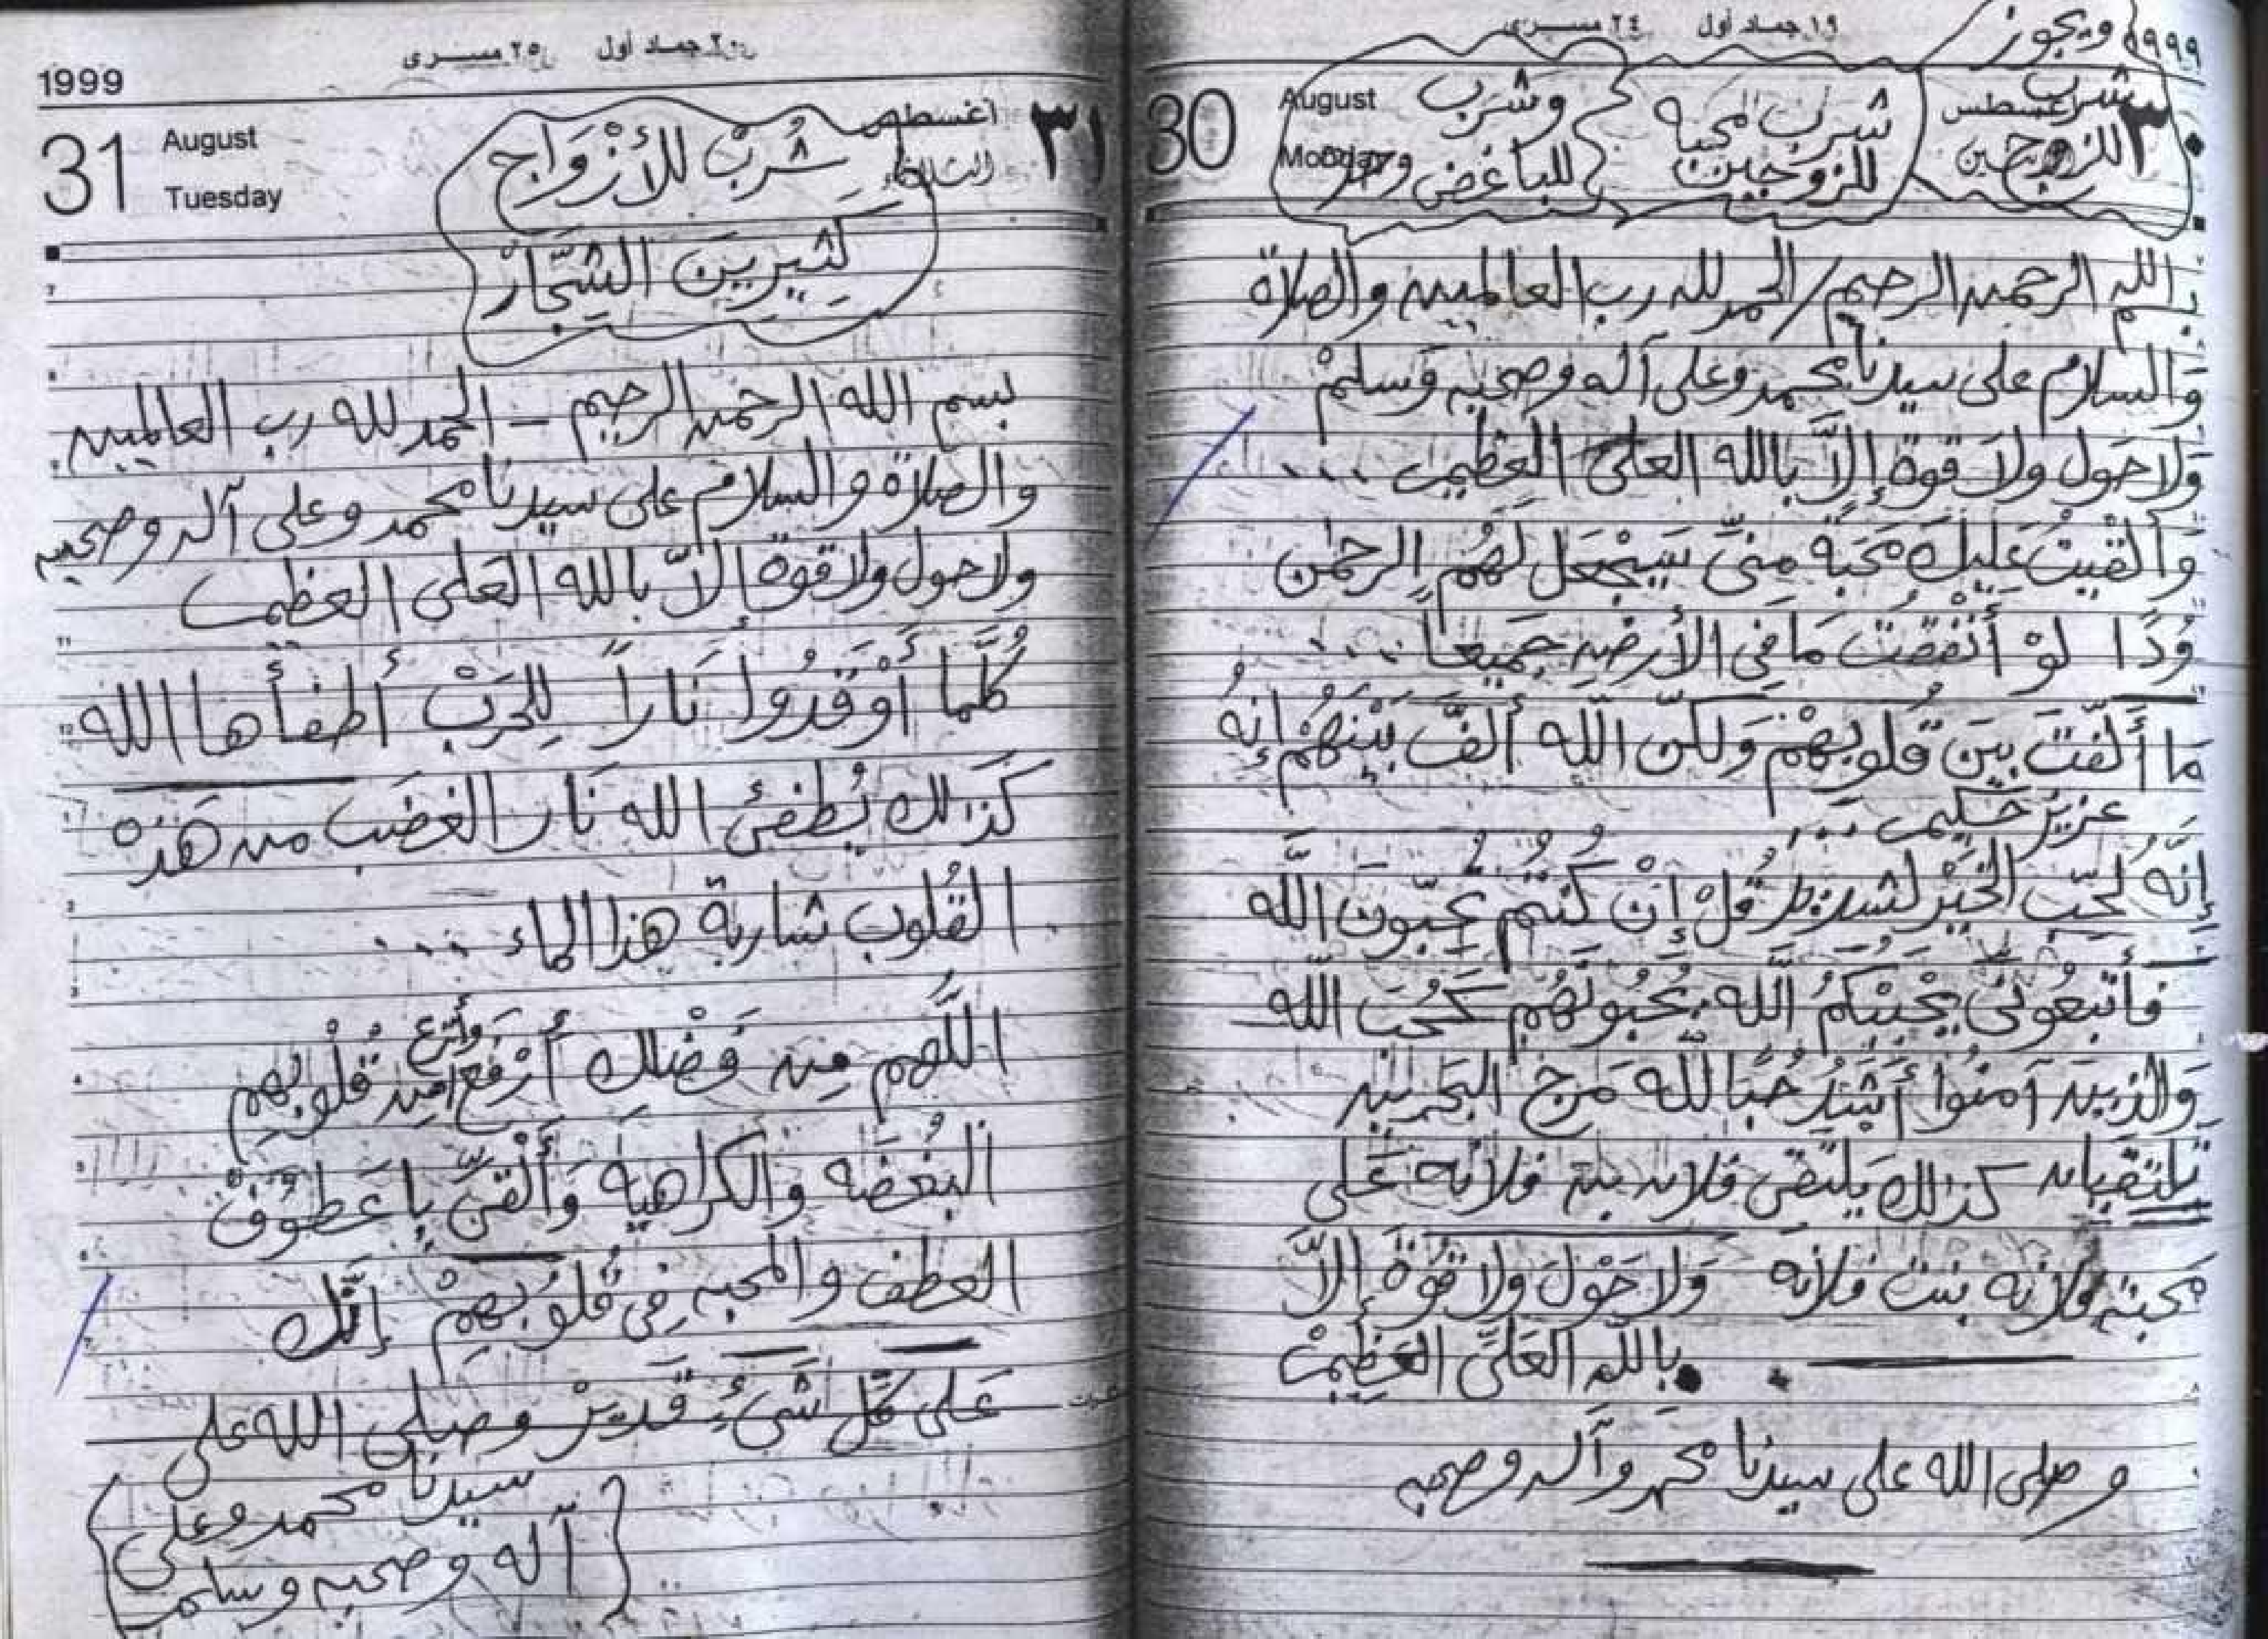 ١٩ جماد أول ٢٤ مسرى
١٩٩٩
ويجوز
شرب
للزوجين
٣٠ أغسطس
شرب محبه
للزوجين
وشرب
للباغض وحده
August
Monday
30
بسم الله الرحمن الرحيم / الحمد لله رب العالمين والصلاة
والسلام على سيدنا محمد وعلى آله وصحبه وسلم
ولا حول ولا قوة إلا بالله العلى العظيم ...
وألقيت عليك محبة منى سيجعل لهم الرحمن
ودا لو أنفقت ما فى الأرض جميعاً ...
ما ألفت بين قلوبهم ولكن الله ألف بينهم إنه
عزيز حكيم ...
إنه لحب الخير لشديد قل إن كنتم تحبون الله
فاتبعونى يحببكم الله يحبونهم كحب الله
والذين آمنوا أشد حبا لله مرج البحرين
يلتقيان كذالك يلتقى فلان بن فلانه على
محبة فلانه بنت فلانه ولا حول ولا قوة إلا
بالله العلى العظيم
وصلى الله على سيدنا محمد وآله وصحبه
٢٠ جماد أول ٢٥ مسرى
1999
٣١ أغسطس
الثلاثاء
August
Tuesday
31
شرب للأزواج
كثيرين الشجار
بسم الله الرحمن الرحيم - الحمد لله رب العالمين
والصلاة والسلام على سيدنا محمد وعلى آله وصحبه
ولا حول ولا قوة إلا بالله العلى العظيم
كلما أوقدوا ناراً للحرب أطفأها الله
كذالك يطفئ الله نار الغضب من هذه
القلوب شاربة هذا الماء ...
اللهم من فضلك أرفع وأنزع من قلوبهم
البغضه والكراهيه وألقى يا عطوف
العطف والمحبه فى قلوبهم إنك
على كل شئ قدير وصلى الله على
سيدنا محمد وعلى
آله وصحبه وسلم